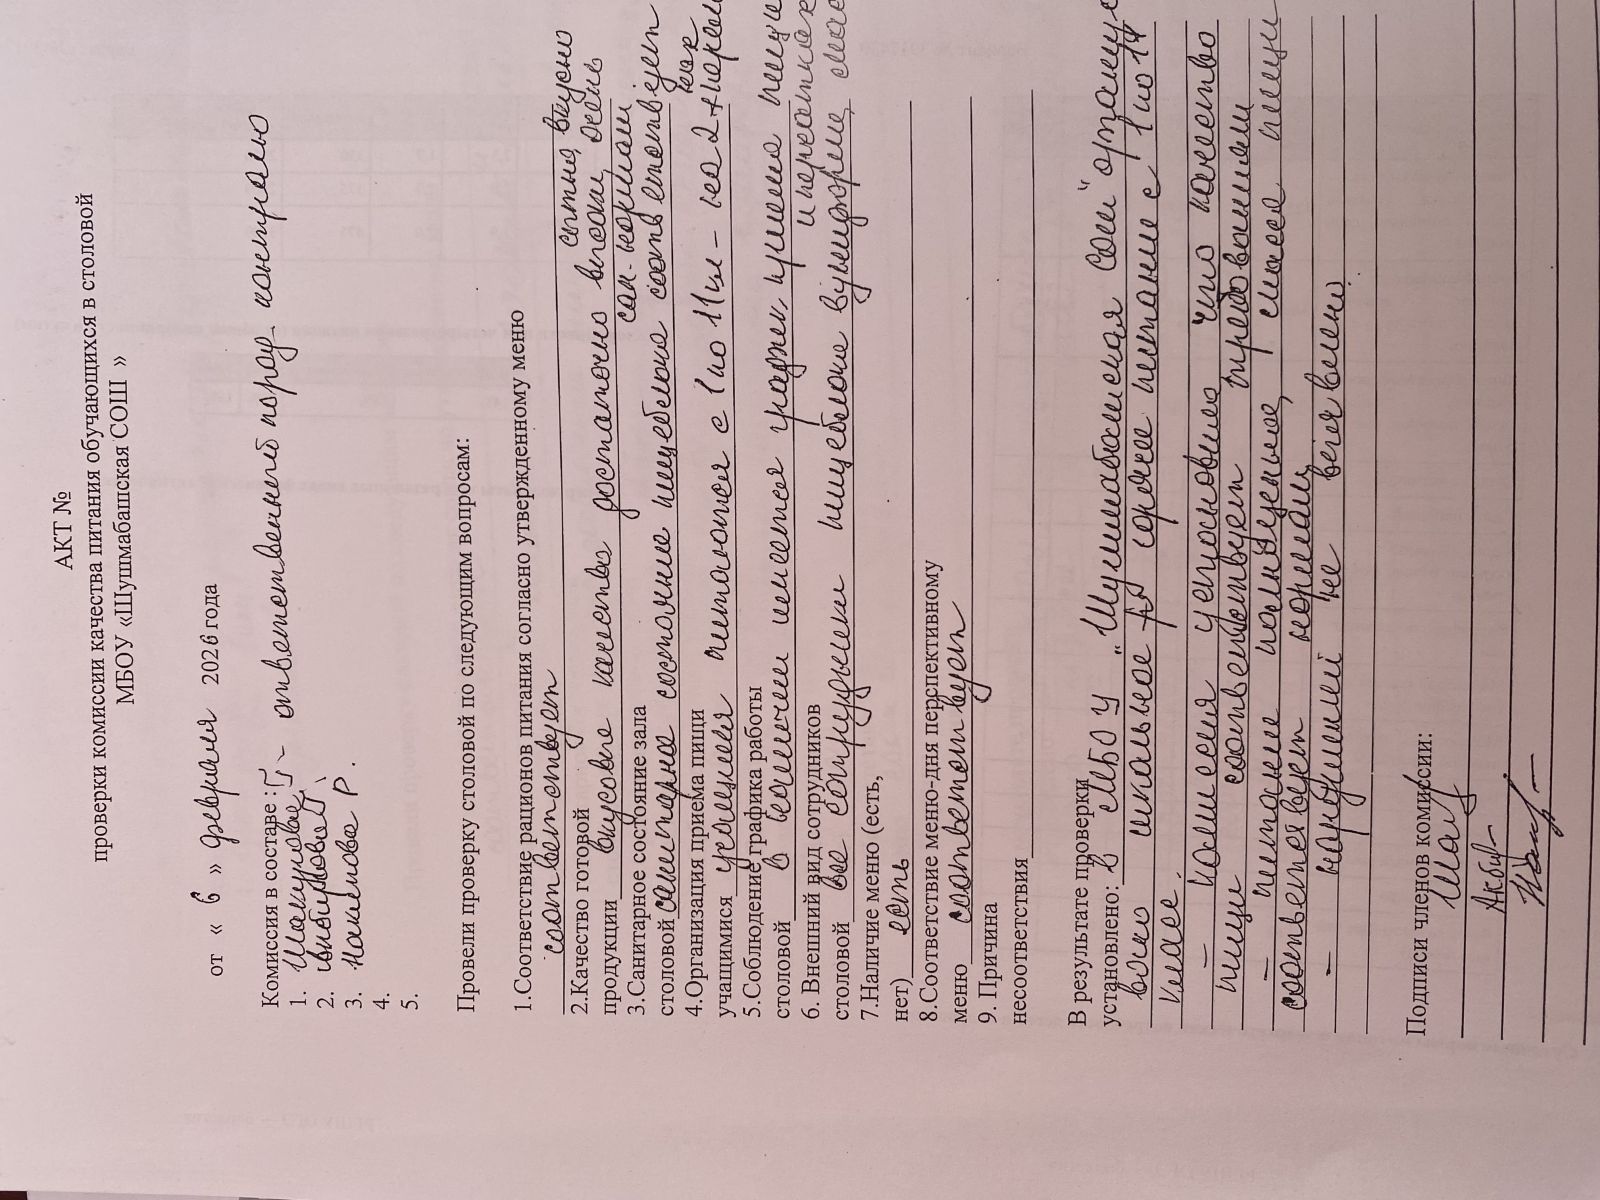 АКТ №
проверки комиссии качества питания обучающихся в столовой
МБОУ «Шушмабашская СОШ »
от « 6 » февраля 2026 года
Комиссия в составе :
1. Шакурова Г. - ответственный по род. контролю
2.
3. Накипова Р.
4.
5.
Провели проверку столовой по следующим вопросам:
1.Соответствие рационов питания согласно утвержденному меню
соответствует
сытно, вкусно
2.Качество готовой
продукции вкусовые качества достаточно высоки, очень
3.Санитарное состояние зала сан. нормам
столовой санитарное состояние пищеблока соответствует
4.Организация приема пищи
учащимися учащиеся питаются с 1 по 11 кл - на 2
5.Соблюдение графика работы
столовой в наличии имеется график приема пищи
6. Внешний вид сотрудников
столовой все сотрудники пищеблока в униформе,
7.Наличие меню (есть,
нет) есть
8.Соответствие меню-дня перспективному
меню соответствует
9. Причина
несоответствия
В результате проверки
установлено: в МБОУ "Шушмабашская СОШ"
школьное горячее питание с 1 по 11
класс.
- комиссия установила что качество
пищи соответствует требованиям
- питание полноценное, масса пищи
соответствует нормам,
- нарушений не выявлено.
Подписи членов комиссии: